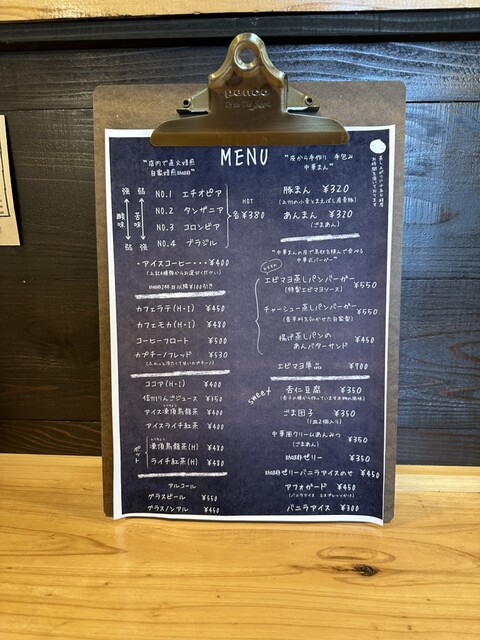 penco
MENU
"店内で直火焙煎
自家焙煎"
強 弱
酸味 苦味
弱 強
NO.1 エチオピア
NO.2 タンザニア
NO.3 コロンビア
NO.4 ブラジル
HOT
各¥380
・アイスコーヒー・・・¥400
カフェラテ(H・I) ¥450
カフェモカ(H・I) ¥480
コーヒーフロート ¥500
カプチーノフレッド ¥530
ココア(H・I) ¥400
信州りんごジュース ¥350
アイス凍頂烏龍茶 ¥400
アイスライチ紅茶 ¥400
ポット
凍頂烏龍茶(H) ¥480
ライチ紅茶(H) ¥480
アルコール
グラスビール ¥550
グラスノンアル ¥450
"皮から手作り 手包み
中華まん"
豚まん ¥320
あんまん ¥320
(ごまあん)
エビマヨ蒸しパンバーガー ¥550
(特製エビマヨソース)
チャーシュー蒸しパンバーガー ¥550
揚げ蒸しパンの
あんバターサンド ¥450
エビマヨ単品 ¥700
sweet
杏仁豆腐 ¥350
ごま団子 ¥350
(1皿2個入り)
中華風クリームあんみつ ¥350
(ごまあん)
ゼリー ¥350
ゼリーバニラアイスのせ ¥450
アフォガード ¥450
バニラアイス ¥300